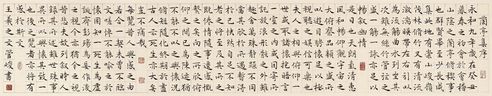 蘭亭集序
永和九年歲在癸丑
暮春之初會于會稽
山陰之蘭亭脩禊事
也群賢畢至少長咸
集此地有崇山峻嶺
茂林脩竹又有清流
激湍映帶左右引以
為流觴曲水列坐其
次雖無絲竹管弦之
盛一觴一詠亦足以
暢敘幽情
是日也天朗氣清惠
風和暢仰觀宇宙之
大俯察品類之盛所
以遊目騁懷足以極
視聽之娛信可樂也
夫人之相與俯仰一
世或取諸懷抱晤言
一室之內或因寄所
託放浪形骸之外雖
取舍萬殊靜躁不同
當其欣於所遇暫得
於己快然自足不知
老之將至及其所之
既倦情隨事遷感慨
係之矣向之所欣俛
仰之間已為陳跡猶
不能不以之興懷況
脩短隨化終期於盡
古人云死生亦大矣
豈不痛哉
每覽昔人興感之由
若合一契未嘗不臨
文嗟悼不能喻之於
懷固知一死生為虛
誕齊彭殤為妄作後
之視今亦猶今之視
昔悲夫故列敘時人
錄其所述雖世殊事
異所以興懷其致一
也後之覽者亦將有
感於斯文
王羲之文管峻書